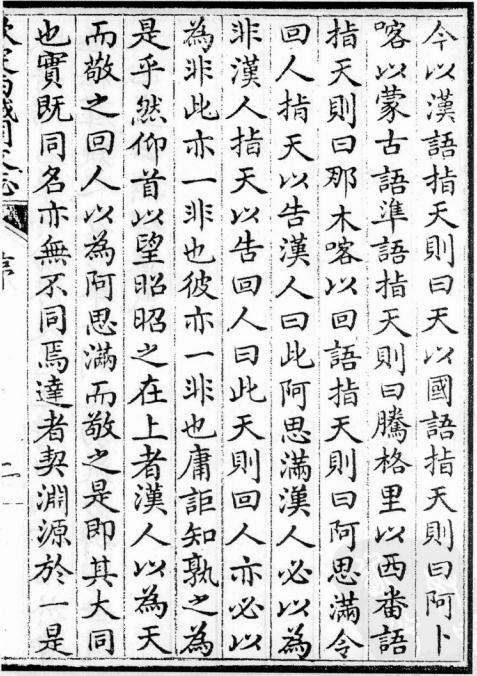 今以漢語指天則曰天以國語指天則曰阿卜
喀以蒙古語準語指天則曰騰格里以西番語
指天則曰那木喀以回語指天則曰阿思滿令
回人指天以告漢人曰此阿思滿漢人必以為
非漢人指天以告回人曰此天則回人亦必以
為非此亦一非也彼亦一非也庸詎知孰之為
是乎然仰首以望昭昭之在上者漢人以為天
而敬之回人以為阿思滿而敬之是即其大同
也實既同名亦無不同焉達者契淵源於一是
欽定西域同文志
序
二